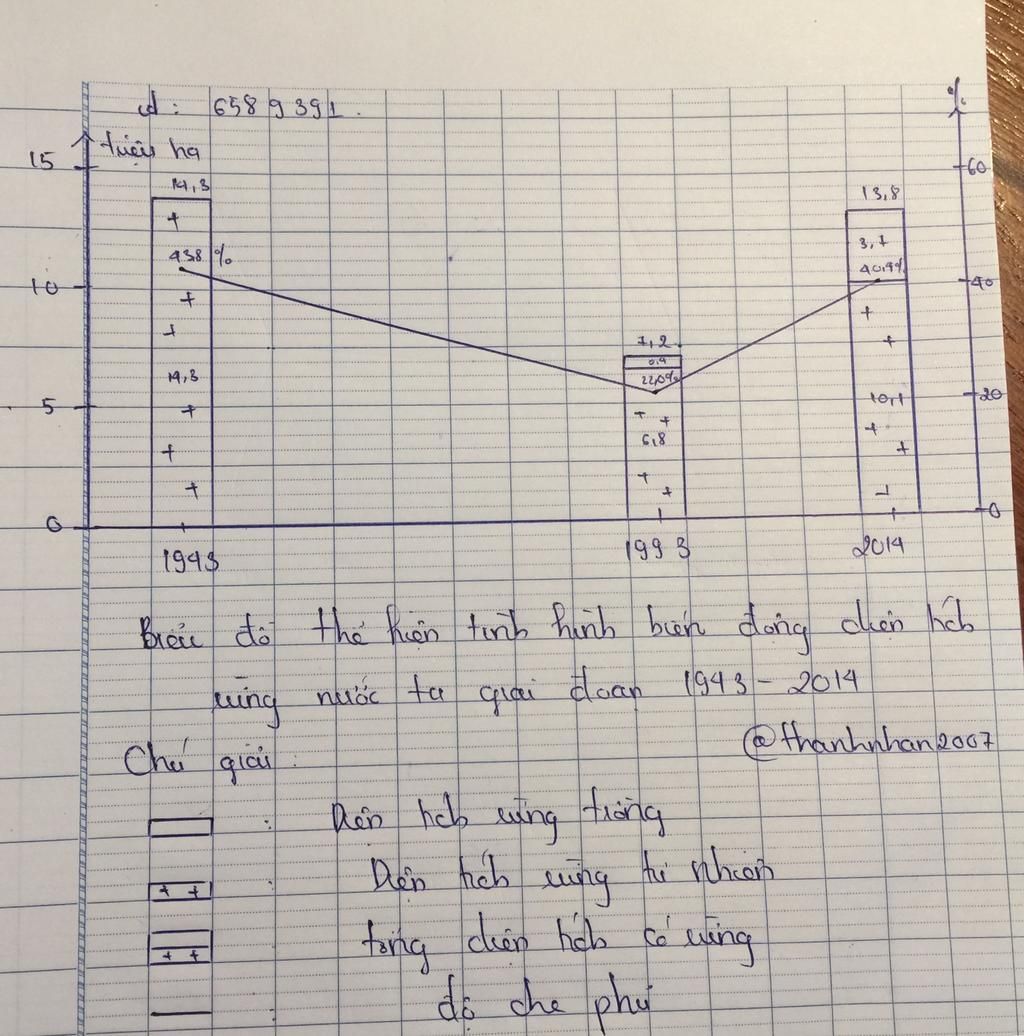 id: 6589391.
%
triệu ha
15
60
14,3
13,8
43,8 %
3,7
40,4%
10
40
7,2
0,4
22,0%
14,3
5
20
10,1
6,8
0
0
1943
1993
2014
Biểu đồ thể hiện tình hình biến động diện tích
rừng nước ta giai đoạn 1943 - 2014
@thanhnhan2007
Chú giải:
: Diện tích rừng trồng
: Diện tích rừng tự nhiên
: tổng diện tích có rừng
: độ che phủ